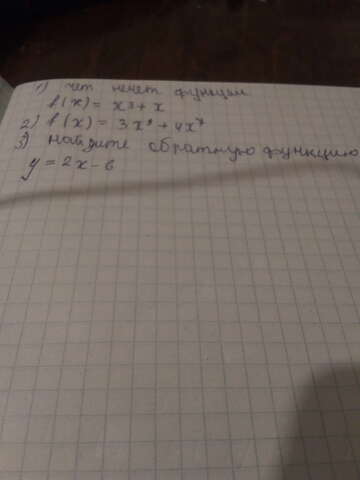 1) чет нечет функции
f(x) = x³ + x
2) f(x) = 3x⁹ + 4x⁷
3) Найдите обратную функцию
y = 2x - 6